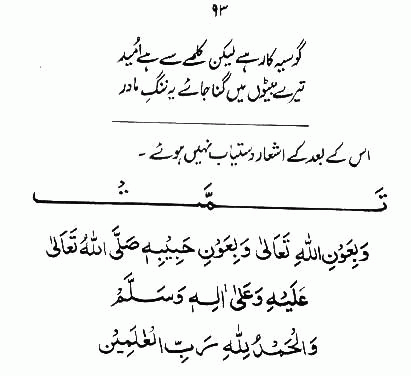 ۹۳
گو سیہ کار ہے لیکن کلمے سے ہے اُمید
تیرے بیٹوں میں گنا جائے یہ ننگِ مادر
اس کے بعد کے اشعار دستیاب نہیں ہوئے ۔
تَمَّتْ
وَبِعَوْنِ اللهِ تَعَالىٰ وَبِعَوْنِ حَبِيْبِهٖ صَلَّى اللهُ تَعَالىٰ
عَلَيْهِ وَعَلىٰ اٰلِهٖ وَسَلَّمْ
وَالْحَمْدُ لِلّٰهِ رَبِّ الْعٰلَمِيْنَ